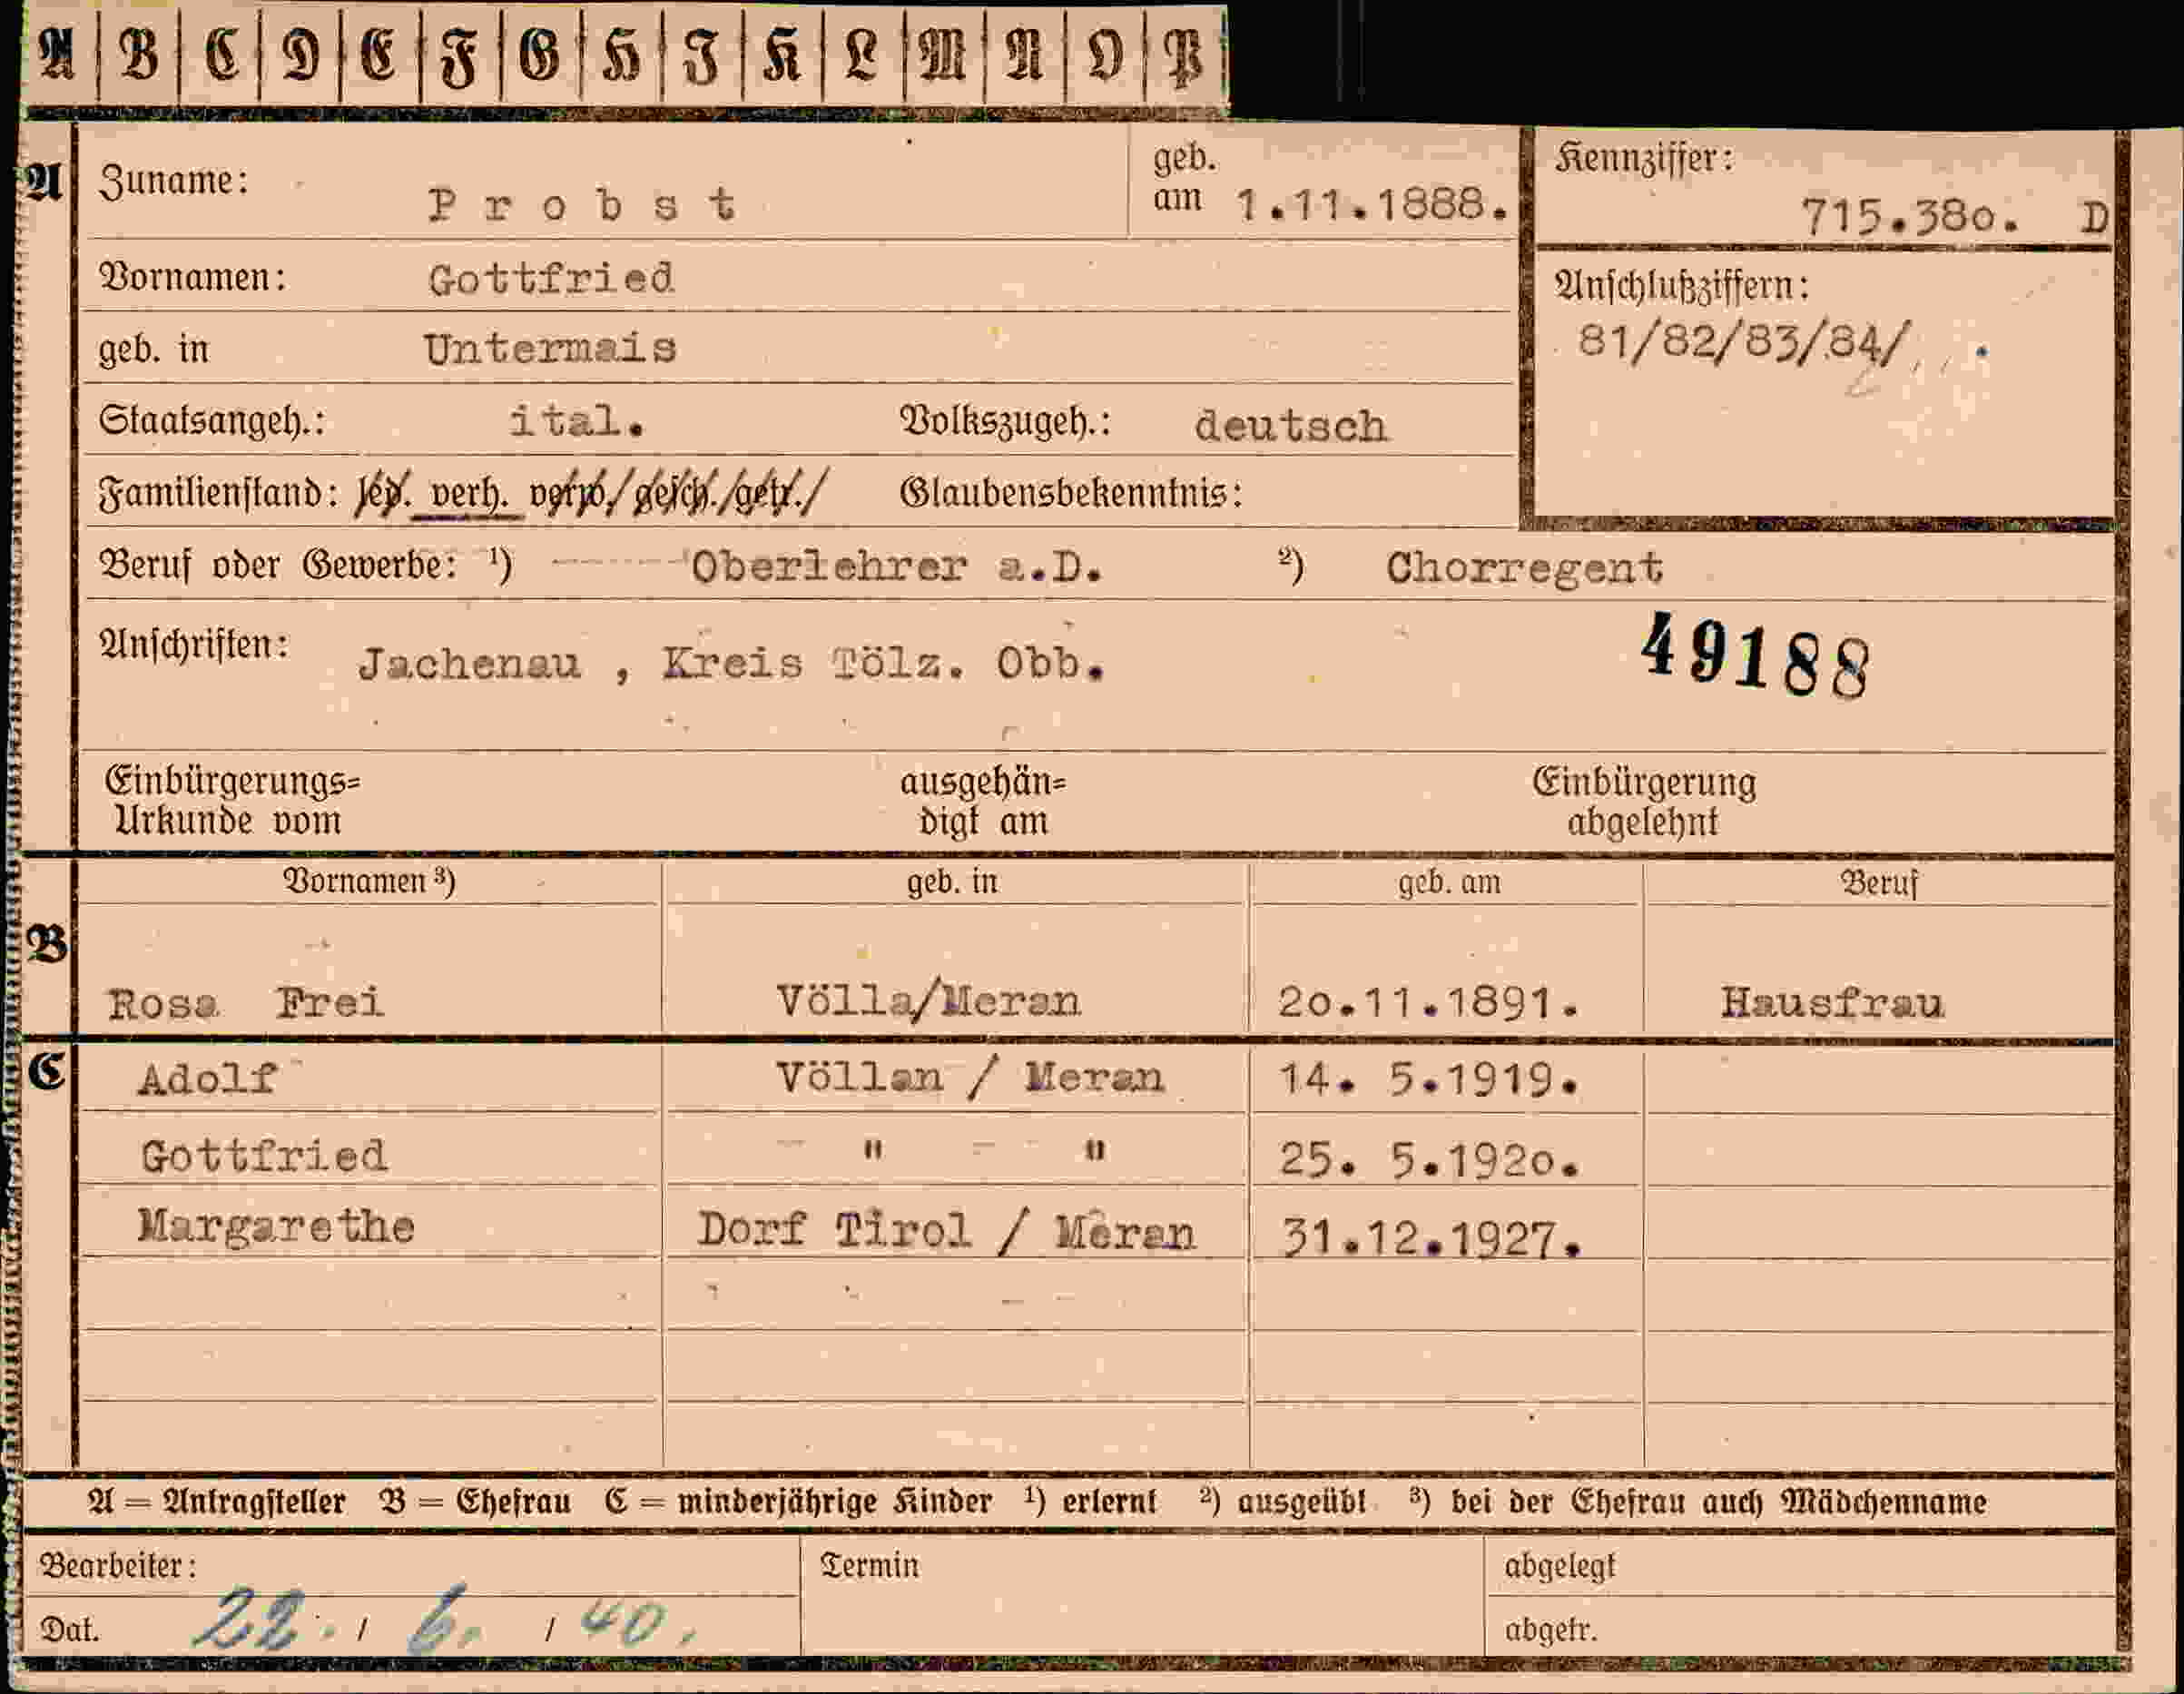 A B C D E F G H I K L M N O P
A Zuname: Probst geb. am 1.11.1888. Kennziffer: 715.380. D
Vornamen: Gottfried
Anschlußziffern:
geb. in Untermais 81/82/83/84/
Staatsangeh.: ital. Volkszugeh.: deutsch
Familienstand: led. verh. verw./gesch./getr./ Glaubensbekenntnis:
Beruf oder Gewerbe: ¹) Oberlehrer a.D. ²) Chorregent
Anschriften: Jachenau , Kreis Tölz. Obb. 49188
Einbürgerungs= ausgehän= Einbürgerung
Urkunde vom digt am abgelehnt
Vornamen ³) geb. in geb. am Beruf
B
Rosa Frei Völla/Meran 2o.11.1891. Hausfrau
C Adolf Völlan / Meran 14. 5.1919.
Gottfried " " 25. 5.192o.
Margarethe Dorf Tirol / Meran 31.12.1927.
A = Antragsteller B = Ehefrau C = minderjährige Kinder ¹) erlernt ²) ausgeübt ³) bei der Ehefrau auch Mädchenname
Bearbeiter: Termin abgelegt
Dat. 22. / 6. / 40. abgetr.